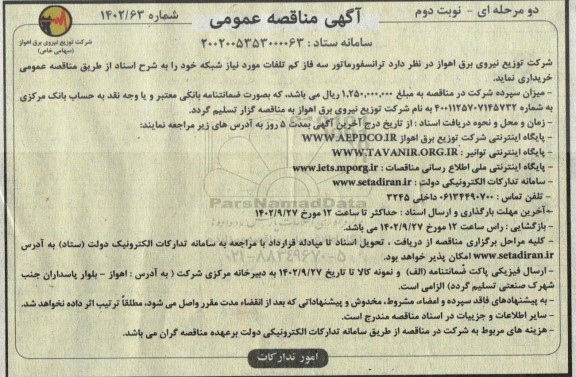 دو مرحله ای - نوبت دوم
آگهی مناقصه عمومی
شماره ۱۴۰۲/۶۳
شرکت توزیع نیروی برق اهواز
(سهامی خاص)
سامانه ستاد : ۲۰۰۲۰۰۵۳۵۳۰۰۰۰۶۳
شرکت توزیع نیروی برق اهواز در نظر دارد ترانسفورماتور سه فاز کم تلفات مورد نیاز شبکه خود را به شرح اسناد از طریق مناقصه عمومی
خریداری نماید.
- میزان سپرده شرکت در مناقصه به مبلغ ۱,۲۵۰,۰۰۰,۰۰۰ ریال می باشد، که بصورت ضمانتنامه بانکی معتبر و یا وجه نقد به حساب بانک مرکزی
به شماره ۴۰۰۱۱۲۵۷۰۷۱۴۵۷۳۲ به نام شرکت توزیع نیروی برق اهواز به مناقصه گزار تسلیم گردد.
- زمان و محل و نحوه دریافت اسناد : از تاریخ درج آخرین آگهی بمدت ۵ روز به آدرس های زیر مراجعه نمایند:
- پایگاه اینترنتی شرکت توزیع برق اهواز WWW.AEPDCO.IR
- پایگاه اینترنتی توانیر : WWW.TAVANIR.ORG.IR
- پایگاه اینترنتی ملی اطلاع رسانی مناقصات : www.iets.mporg.ir
- سامانه تدارکات الکترونیکی دولت : www.setadiran.ir
- تلفن تماس : ۰۶۱۳۴۴۹۰۷۰۰ داخلی ۳۲۴۵
- آخرین مهلت بارگذاری و ارسال اسناد : حداکثر تا ساعت ۱۲ مورخ ۱۴۰۲/۹/۲۷
- بازگشایی : راس ساعت ۱۲ مورخ ۱۴۰۲/۹/۲۷ می باشد.
- کلیه مراحل برگزاری مناقصه از دریافت ، تحویل اسناد تا مبادله قرارداد با مراجعه به سامانه تدارکات الکترونیک دولت (ستاد) به آدرس
www.setadiran.ir امکان پذیر خواهد بود.
- ارسال فیزیکی پاکت ضمانتنامه (الف) و نمونه کالا تا تاریخ ۱۴۰۲/۹/۲۷ به دبیرخانه مرکزی شرکت ( به آدرس : اهواز - بلوار پاسداران جنب
شهرک صنعتی تسلیم گردد) الزامی است.
- به پیشنهادهای فاقد سپرده و امضاء، مشروط، مخدوش و پیشنهاداتی که بعد از انقضاء مدت مقرر واصل می شود، مطلقاً ترتیب اثر داده نخواهد شد.
- سایر اطلاعات و جزییات در اسناد مناقصه مندرج است.
- هزینه های مربوط به شرکت در مناقصه از طریق سامانه تدارکات الکترونیکی دولت برعهده مناقصه گران می باشد.
امور تدارکات
ParsNamadData
۰۲۱-۸۸۳۴۹۶۷۰-۵